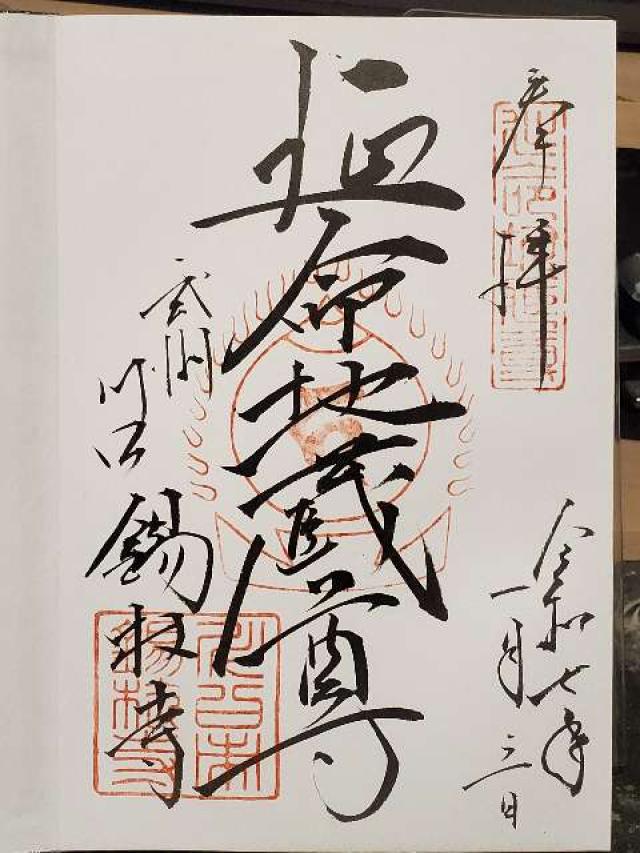 奉拝
令和七年
一月三日
延命地蔵尊
武州
川口
錫杖寺